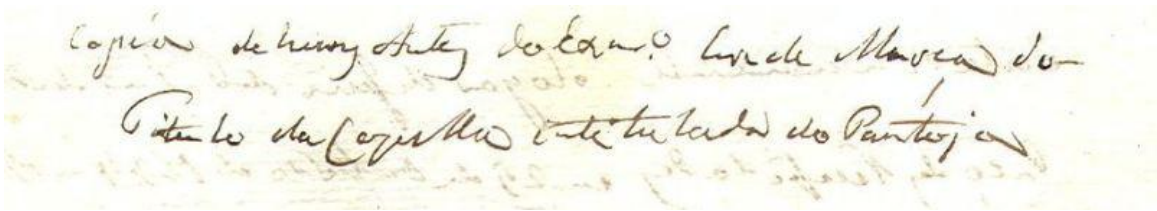 Copia de huns Autos do Exmo. Conde Murça do
Titulo da Capella intitulada do Pantoja